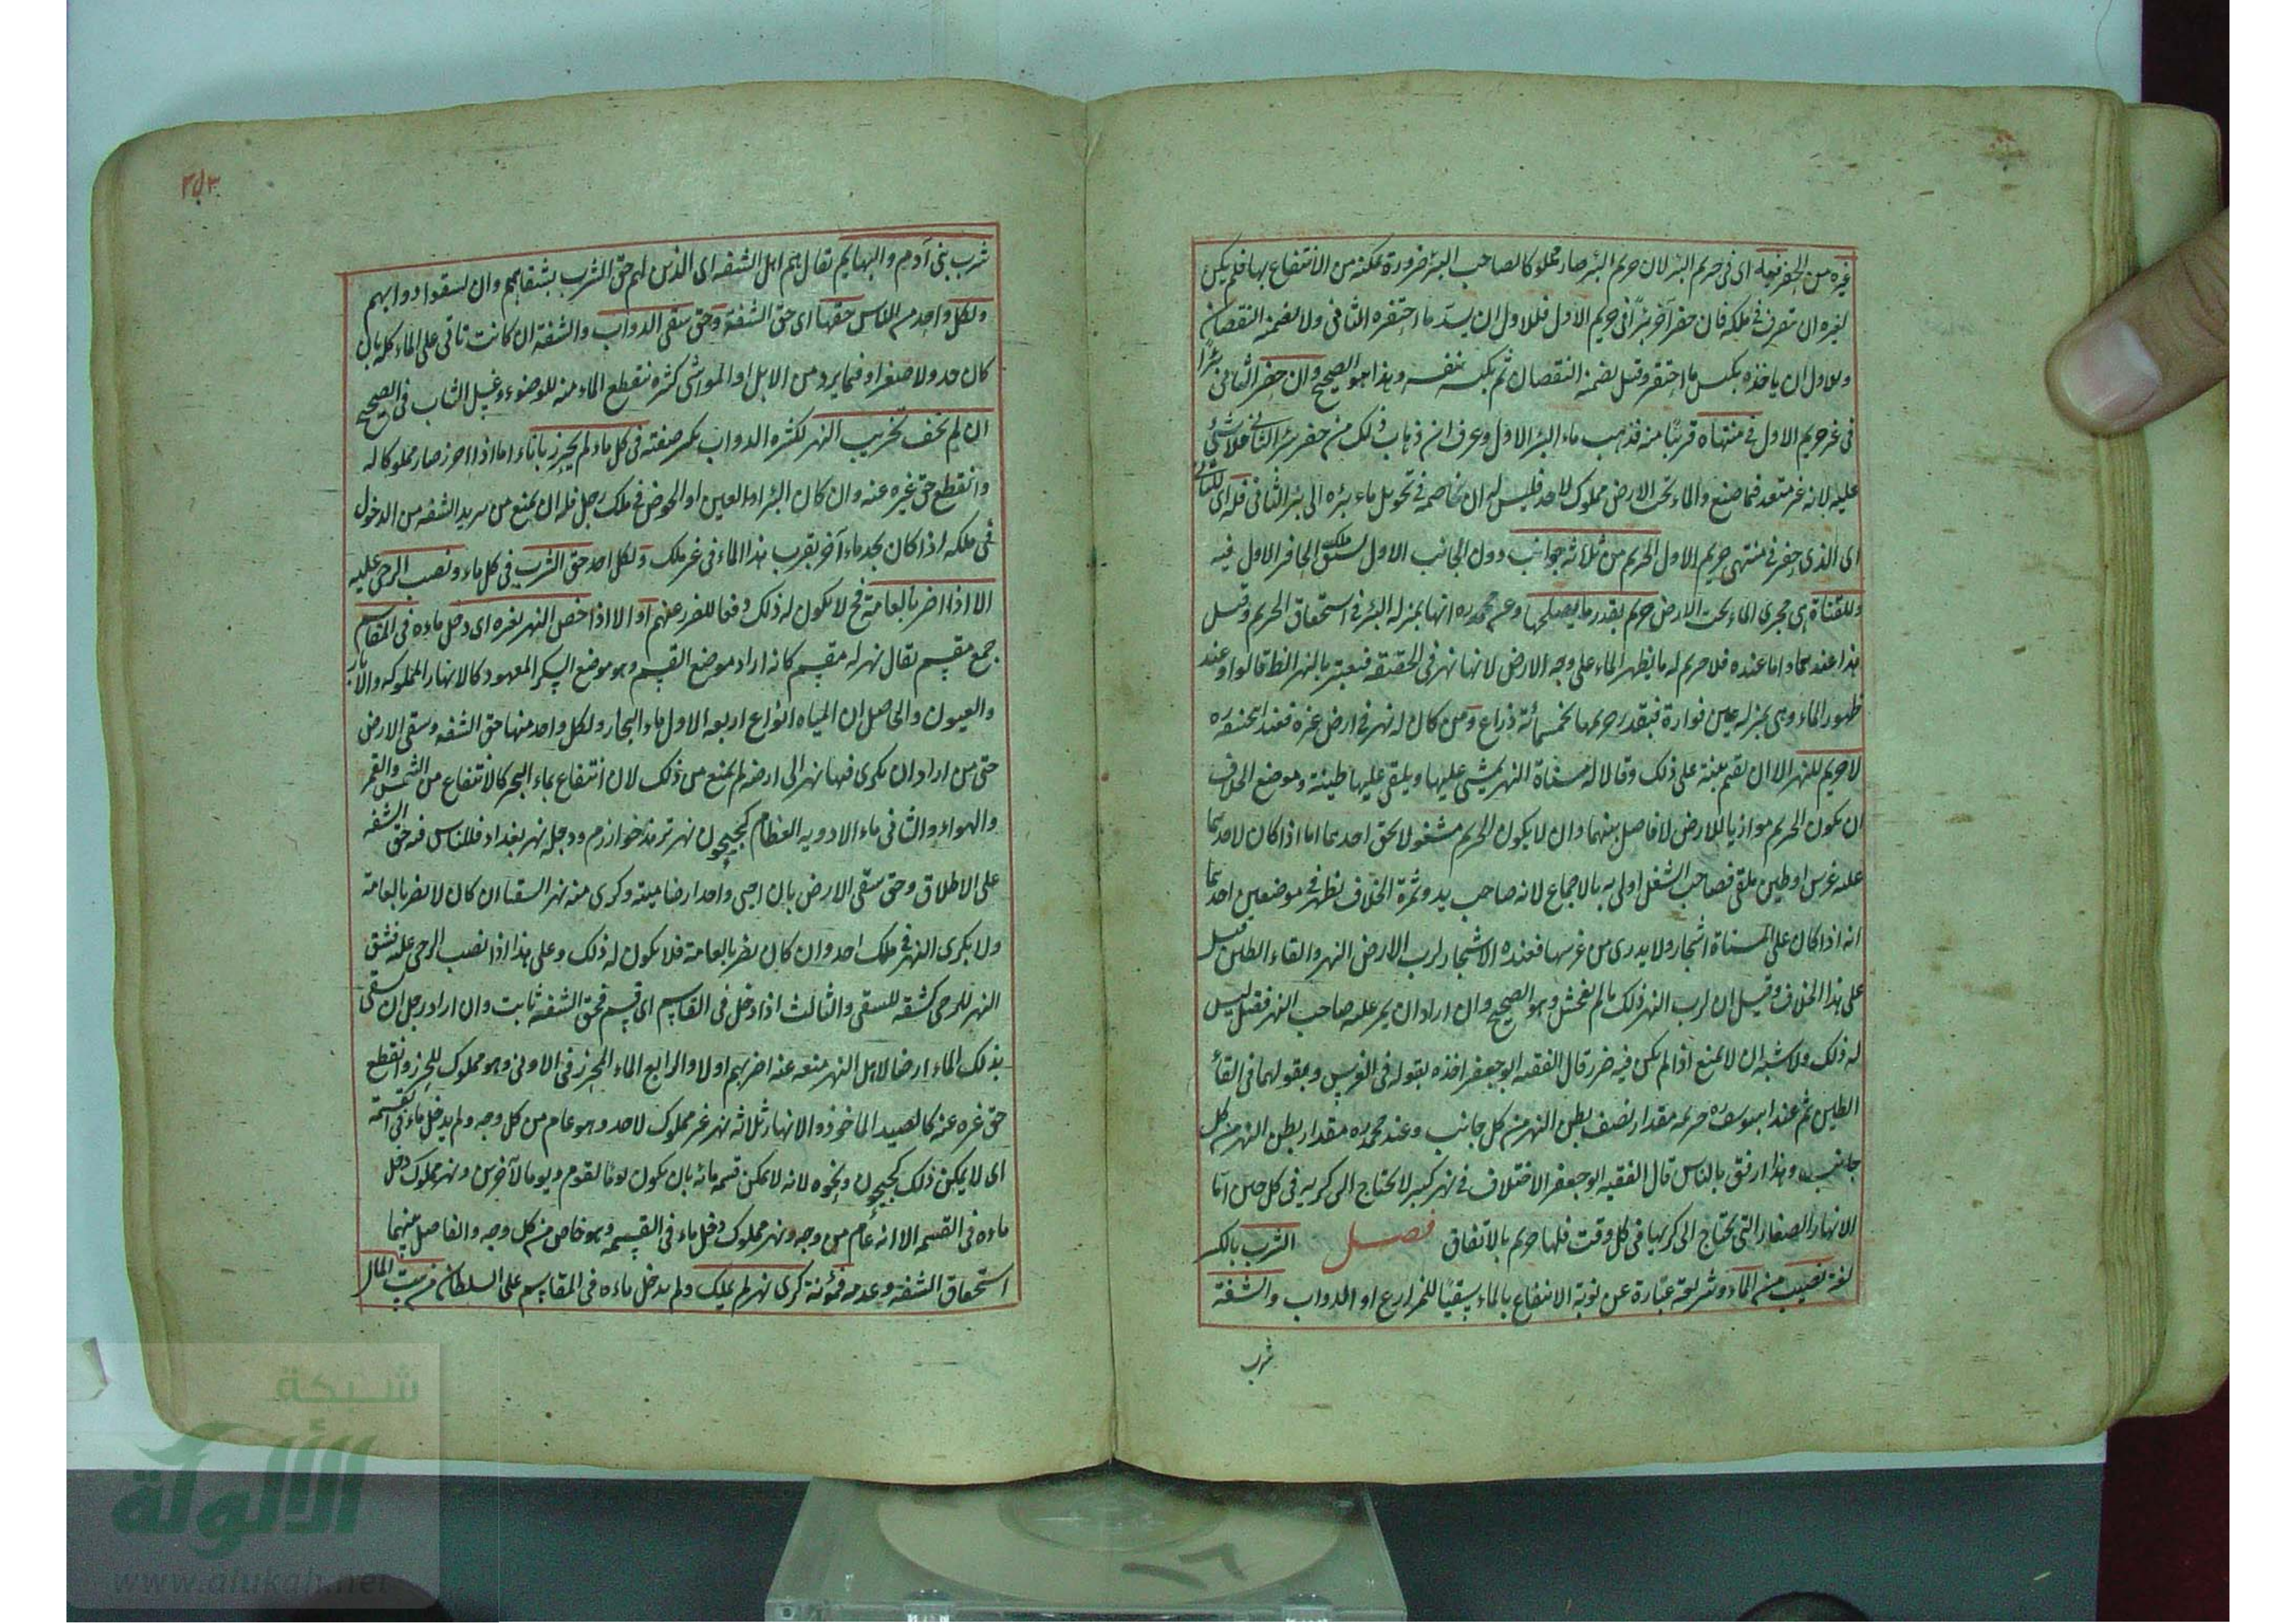 غيره من الحفر فيه اى فى حريم البئر لان حريم البئر صار مملوكا لصاحب البئر ضرورة تمكنه من الانتفاع بها فلم يكن
لغيره ان يتصرف فى ملكه فان حفر آخر بئرا فى حريم الاول فللاول ان يسد ما احتفره الثانى ولا يضمنه النقصان
وللاول ان ياخذه بكبس ما احتفر وقيل يضمنه النقصان ثم يكبسه بنفسه وهذا هو الصحيح وان حفر الثانى بئرا
فى غير حريم الاول فى منتهاه قريبا منه فذهب ماء البئر الاول وعرف ان ذهاب ذلك من حفر بئر الثانى فلا شئ
عليه لانه غير متعد فيما صنع والماء تحت الارض مملوك لاحد فليس له ان يخاصمه فى تحويل ماء بئره الى بئر الثانى فله اى للثانى
اى الذى حفر فى منتهى حريم الاول الحريم من ثلاثة جوانب دون الجانب الاول لسبق ملك الحافر الاول فيه
وللقناة هى مجرى الماء تحت الارض حريم بقدر ما يصلحها وعن محمد ره انها بمنزلة البئر فى استحقاق الحريم وقيل
هذا عندهما واما عنده فلا حريم له ما يظهر الماء على وجه الارض لانها نهر فى الحقيقة فيعتبر بالنهر الظ قالوا وعند
ظهور الماء وهى بمنزلة عين فوارة فيقدر حريمها بخمسمائة ذراع ومن كان له نهر فى ارض غيره فعند ابيحنيفه ره
لا حريم للنهر الا ان يقيم بينة على ذلك وقالا له مسناة النهر يمشى عليها ويلقى عليها طينه وموضع الخلاف
ان يكون الحريم موازيا للارض لا فاصل بينهما وان لا يكون الحريم مشغولا بحق احدهما اما اذا كان لاحدهما
عليه غرس او طين ملقى فصاحب الشغل اولى به بالاجماع لانه صاحب يد وثمرة الخلاف تظهر فى موضعين احدهما
انه اذا كان على المسناة اشجار ولا يدرى من غرسها فعنده الاشجار لرب الارض النهر والقاء الطين قيل
على هذا الخلاف وقيل ان لرب النهر ذلك ما لم يفحش وهو الصحيح وان اراد ان يمر عليه صاحب النهر فقيل ليس
له ذلك والاشبه ان لا يمنع اذا لم يكن فيه ضرر قال الفقيه ابو جعفر اخذه بقوله فى الغرس وبقولهما فى القاء
الطين ثم عند ابيوسف ره حريمه مقدار نصف بطن النهر من كل جانب وعند محمد ره مقدار بطن النهر من كل
جانب وهذا ارفق بالناس قال الفقيه ابو جعفر الاختلاف فى نهر كبير لا يحتاج الى كريه فى كل حين اما
الانهار الصغار التى يحتاج الى كريها فى كل وقت فلها حريم بالاتفاق فصل الشرب بالكسر
لغة نصيب من الماء وشريعة عبارة عن نوبة الانتفاع بالماء سقيا للمزارع او الدواب والشفة
شرب
شرب بنى آدم والبهايم يقال هم اهل الشفه اى الذين لهم حق الشرب بشفاههم وان يسقوا دوابهم
ولكل واحد من الناس حقها اى حق الشفة وحق سقى الدواب والشفة ان كانت تاتى على الماء كله بان
كان جدولا صغيرا وفيما يرد من الابل او المواشى كثره ينقطع الماء منه للوضوء وغسل الثياب فى الصحيح
ان لم يخف تخريب النهر لكثره الدواب بكسر ضفته فى كل ماء لم يحرز باناء اما اذا احرز صار مملوكا له
وانقطع حق غيره عنه وان كان البئر او العين او الحوض فى ملك رجل فله ان يمنع من يريد الشفه من الدخول
فى ملكه اذا كان يجد ماء آخر بقرب هذا الماء فى غير ملك ولكل احد حق الشرب فى كل ماء ونصب الرحى عليه
الا اذا اضر بالعامة فح لا يكون له ذلك دفعا للضرر عنهم او الا اذا خص النهر بغيره اى دخل ماءه فى المقاسم
جمع مقسم يقال نهر له مقسم كانه اراد موضع القسم وهو موضع السكر المعهود كالانهار المملوكه والابار
والعيون والحاصل ان المياه انواع اربعه الاول ماء البحار ولكل واحد منها حق الشفه وسقى الارض
حتى من اراد ان يكرى فيها نهر الى ارضه لم يمنع من ذلك لان انتفاع بماء البحر كالانتفاع من الشمس والقمر
والهواء والثانى ماء الاودويه العظام كجيحون نهر ترمذ خوارزم ودجله نهر بغداد فللناس فيه حق الشفه
على الاطلاق وحق سقى الارض بان احيى واحد ارضا ميتة وكرى منه نهرا لسقيها ان كان لا يضر بالعامة
ولا يكرى النهر فى ملك احد وان كان يضر بالعامة فلا يكون له ذلك وعلى هذا اذا نصب الرحى عليه فشق
النهر للرحى كشقه للسقى والثالث اذا دخل فى القاسم اى قسم فحق الشفة ثابت وان اراد رجل ان يسقى
بذلك الماء ارضا لاهل النهر منعه عنه اضر بهم او لا والرابع الماء المحرز فى الاوانى وهو مملوك للحرز وانقطع
حق غيره عنه كالصيد الماخوذ والانهار ثلاثه نهر غير مملوك لاحد وهو عام من كل وجه ولم يدخل ماءه فى القسمة
اى لا يمكن ذلك كجيحون ونحوه لانه لا يمكن قسمة مائه بان يكون يوما لقوم ويوما لآخرين ونهر مملوك دخل
ماءه فى القسمه الا انه عام من وجه ونهر مملوك دخل ماءه فى القسمه وهو خاص من كل وجه والفاصل بينهما
استحقاق الشفة وعدمه فمؤنة كرى نهر لم يملك ولم يدخل ماءه فى المقاسم على السلطان من بيت المال
شبكة
الألوكة
www.alukah.net